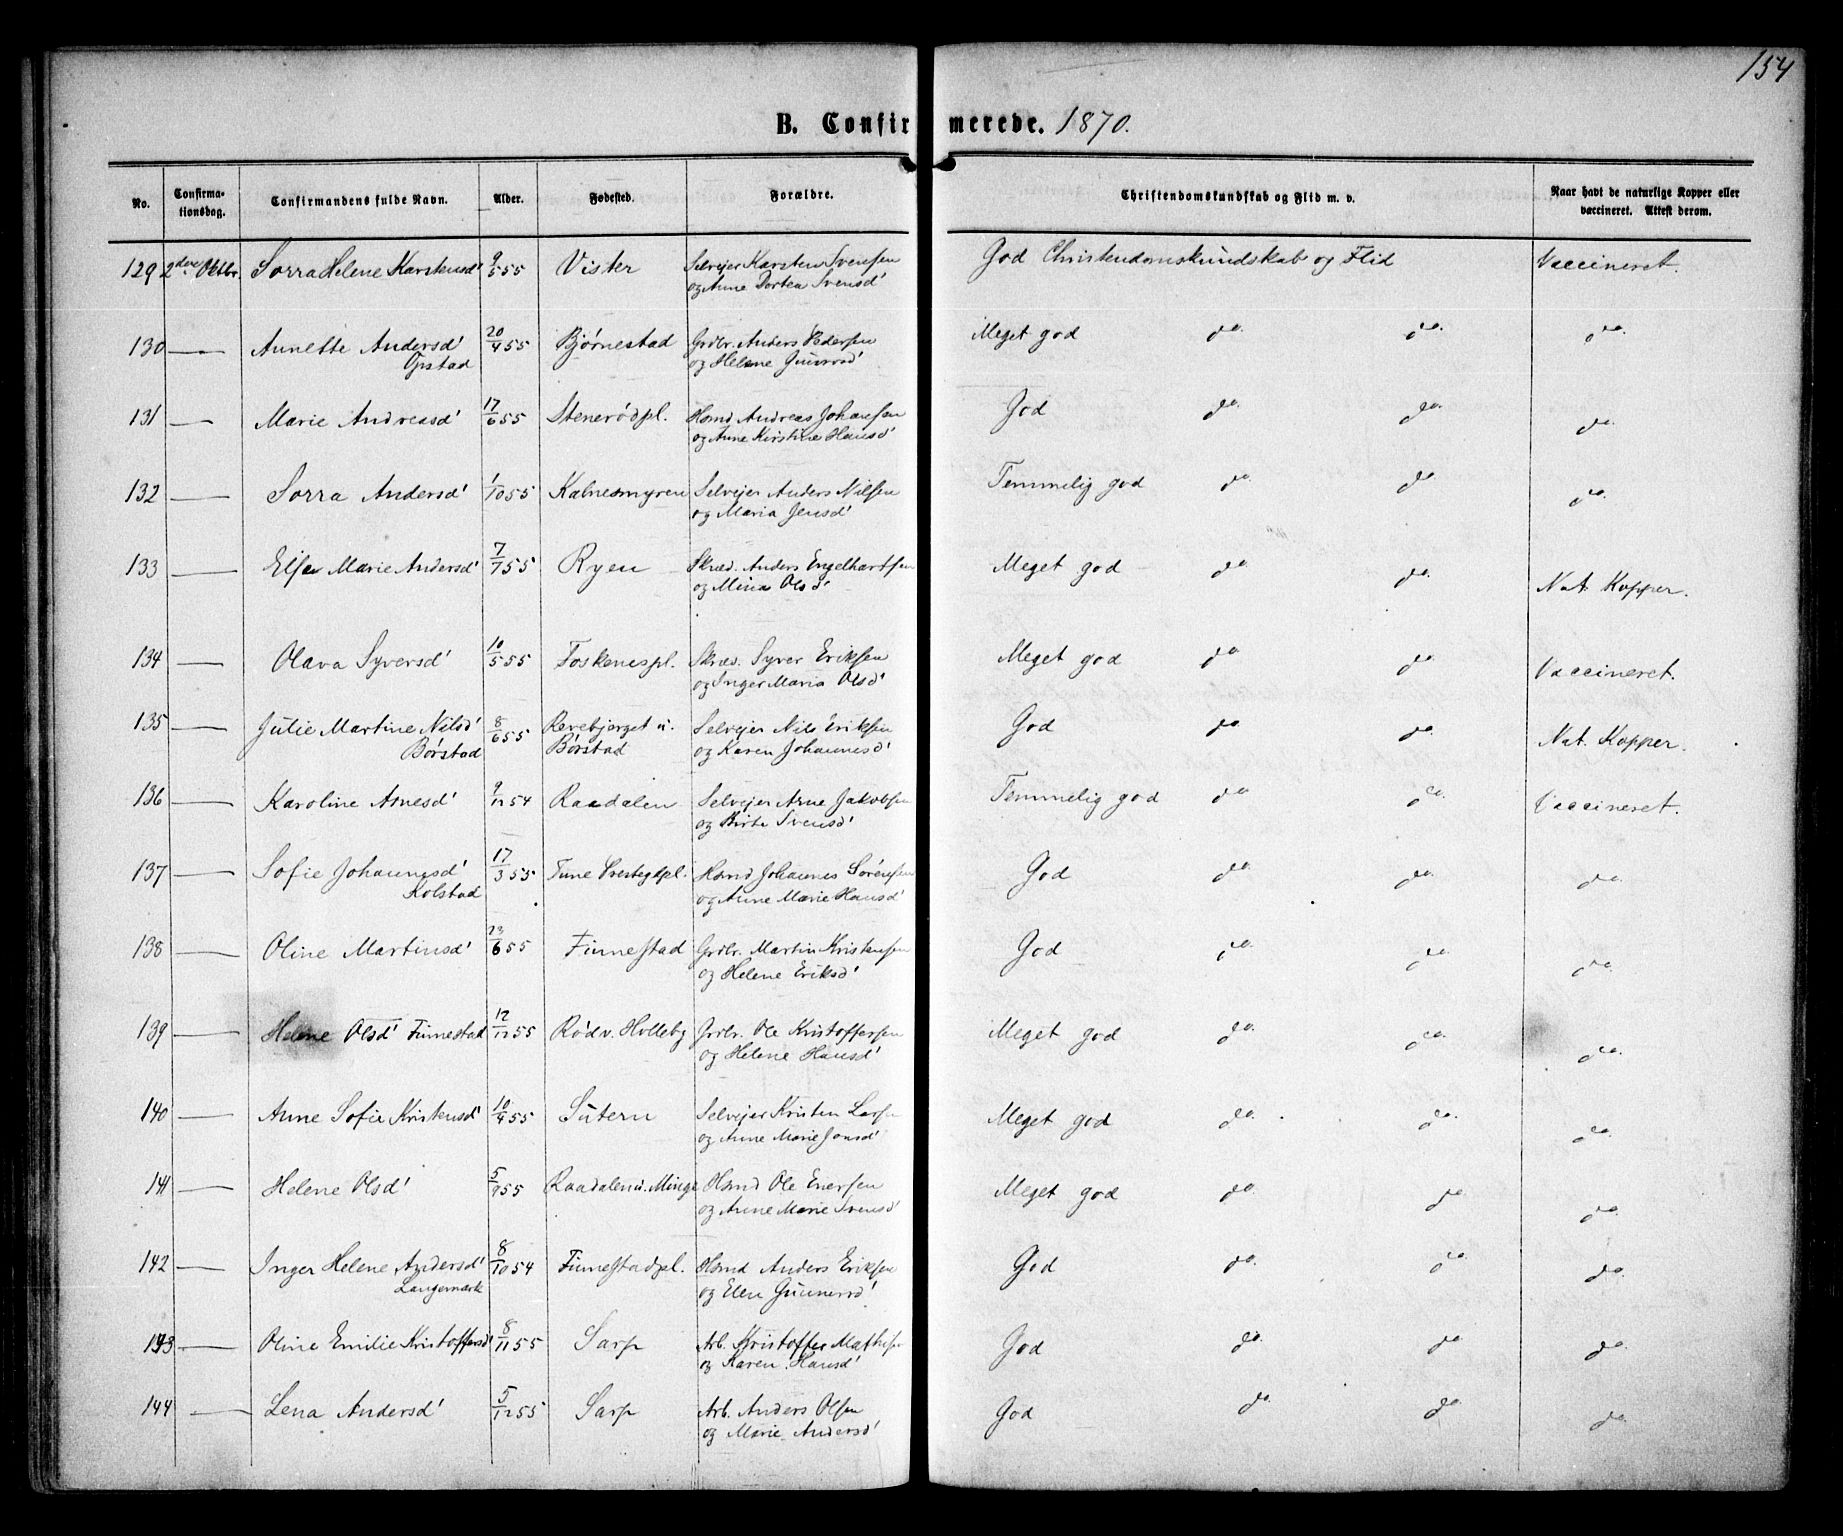 154
B. Confirmerede. 1870.
No. Confirmationsdag. Confirmandens fulde Navn. Alder. Fødested. Forældre. Christendomskundskab og Flid m. v. Naar havt de naturlige Kopper eller vaccineret. Attest derom.
129 2den Oktbr. Sorra Helene Karstensd' 9/5 55 Vister Selvejer Karsten Svensen God Christendomskundskab og Flid Vaccineret.
og Anne Dortea Svensd'
130 — Annette Andersd' 20/4 55 Bjørnestad Grdbr. Anders Pedersen Meget god do. do. do.
Opstad og Helene
131 — Marie Andreasd' 17/6 55 Stenerødpl. Hsmd Andreas Johansen God do. do. do.
og Anne Kirstine Hansd'
132 — Sorra Andersd' 1/10 55 Kalnesmyren Selvejer Anders Nilsen Temmelig god do do. do.
og Maria Jensd'
133 — Elise Marie Andersd' 7/7 55 Ryen Skræd. Anders Engelhartsen Meget god do do. Nat. Kopper.
og Mina Olsd'
134 — Olava Syversd' 10/5 55 Foskenespl. Skræd. Syver Eriksen Meget god do do. Vaccineret.
og Inger Maria Olsd'
135 — Julie Martine Nilsd' 8/6 55 Revebjerget u. Selvejer Nils Eriksen God do do. Nat. Kopper.
Børstad Børstad og Karen Johannesd'
136 — Karoline Arnesd' 9/12 54 Raadalen Selvejer Arne Jakobsen Temmelig god do do. Vaccineret.
og Birte Svensd'
137 — Sofie Johannesd' 17/3 55 Tune Prestegdpl. Hsmd Johannes Sørensen God do. do. do.
Kolstad og Anne Marie Hansd'
138 — Oline Martinsd' 23/6 55 Finnestad Grdbr. Martin Kristensen God do. do. do.
og Helene Eriksd'
139 — Helene Olsd' Finnestad 12/12 55 Rød v. Holleby Grdbr. Ole Kristoffersen Meget god do. do. do.
og Helene Hansd'
140 — Anne Sofie Kristensd' 10/9 55 Sutern Selvejer Kristen Larsn Meget god do. do. do.
og Anne Marie Jonsd'
141 — Helene Olsd' 5/9 55 Raadalen u. Minge Hsmd Ole Enersen Meget god do. do. do.
og Anne Marie Svensd'
142 — Inger Helene Andersd' 8/10 54 Finnestadpl. Hsmd Anders Eriksen God do. do. do.
Langemark og Elen Gunnersd'
143 — Oline Emilie Kristoffersd' 8/11 55 Sarp Arb. Kristoffer Mathisn God do. do do.
og Karen Hansd'
144 — Lena Andersd' 5/12 55 Sarp Arb. Anders Olsen God do. do. do.
og Marie Andersd'